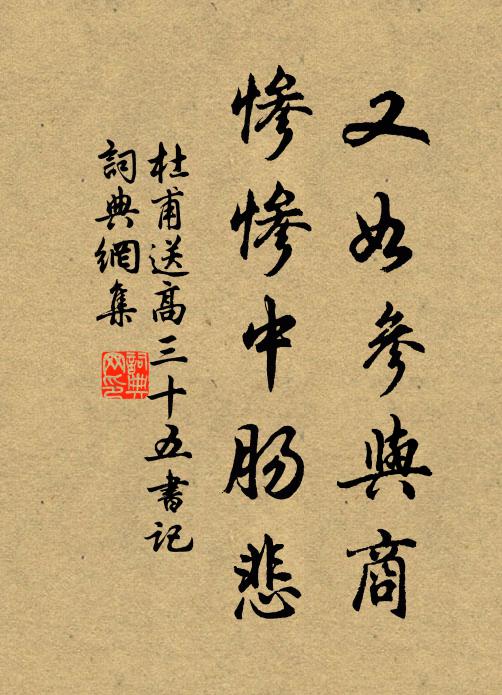 又如參與商
慘慘中腸悲
杜甫送高三十五書記
詞典網集
詞典网印